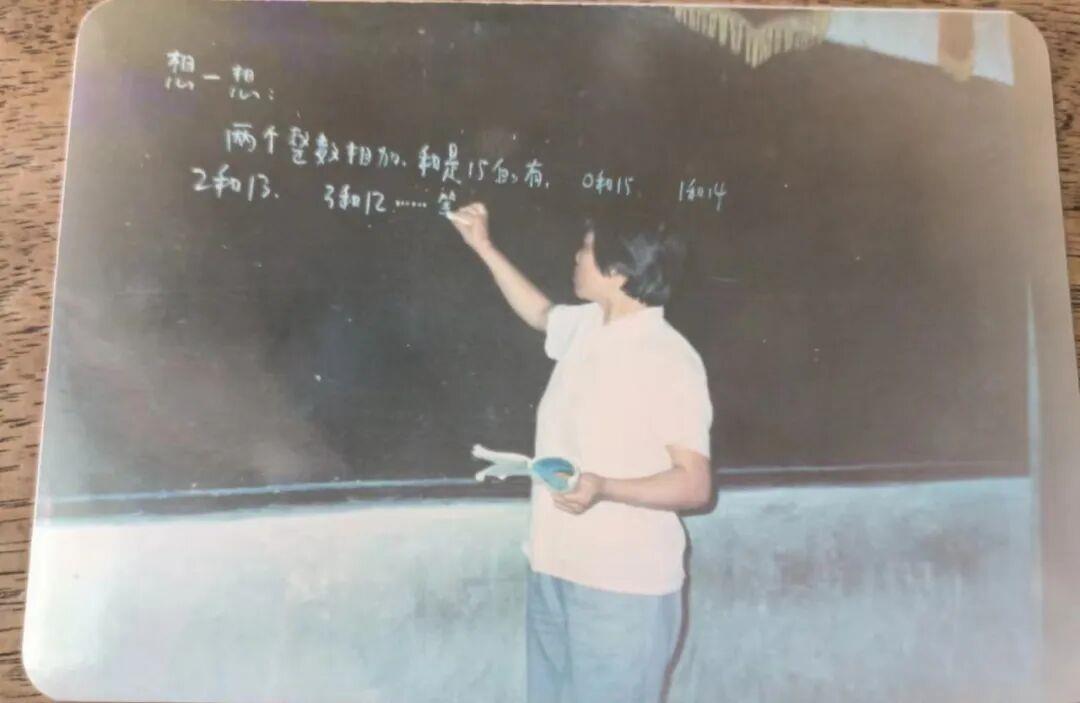 想一想：
两个整数相加，和是15的，有，0和15，1和14
2和13，3和12……等